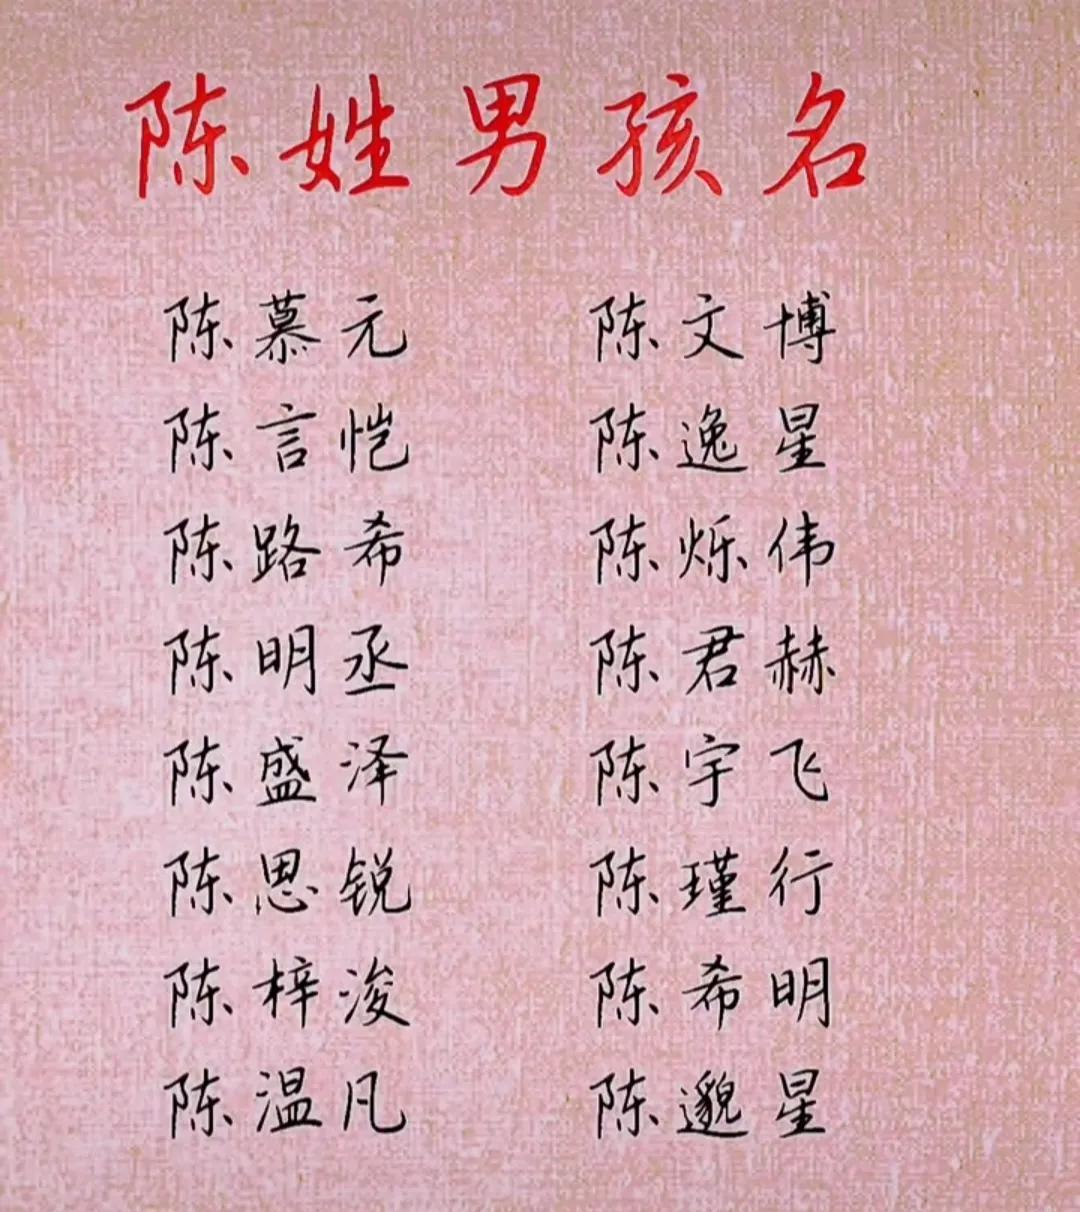 陈姓男孩名
陈慕元 陈文博
陈言恺 陈逸星
陈路希 陈烁伟
陈明丞 陈君赫
陈盛泽 陈宇飞
陈思锐 陈瑾行
陈梓浚 陈希明
陈温凡 陈邈星